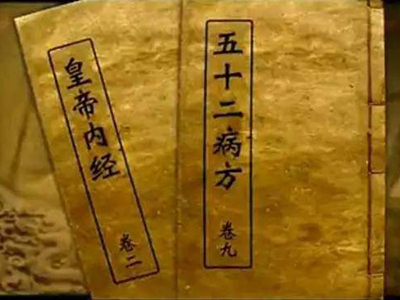 皇帝内经
卷二
五十二病方
卷九